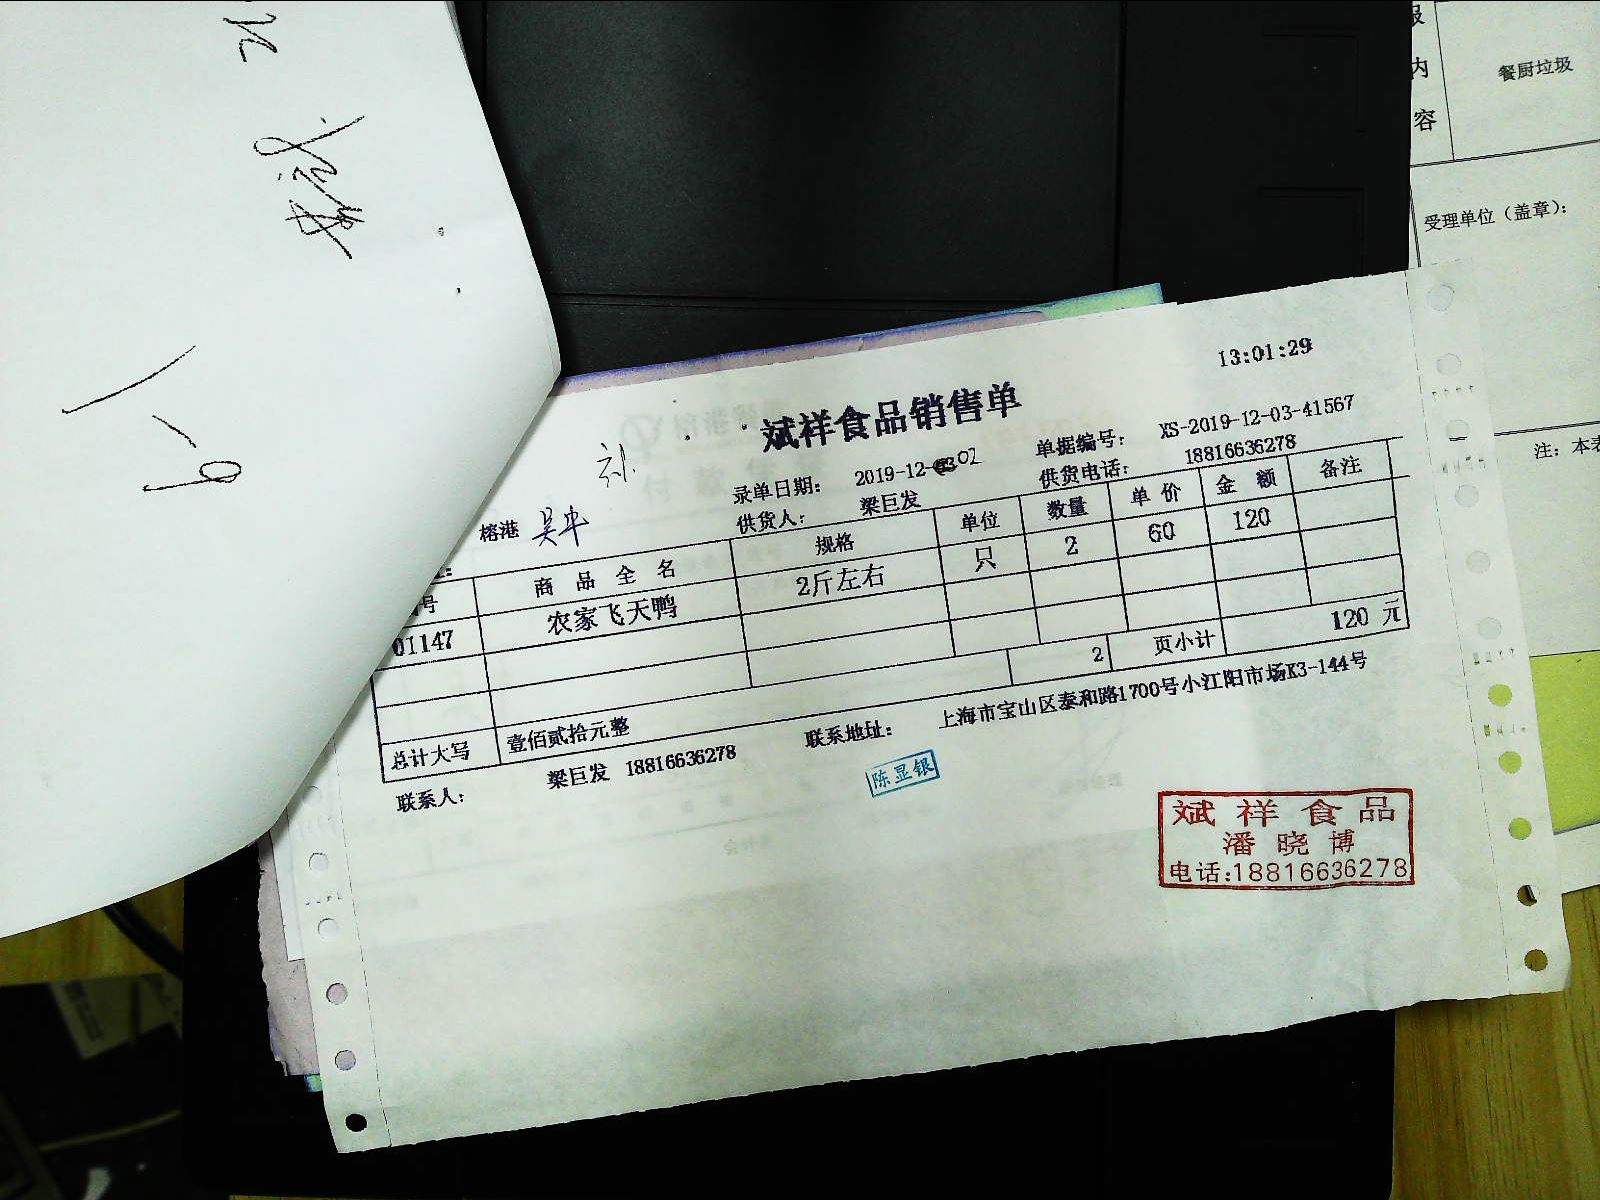 餐厨垃圾
内
容
受理单位（盖章）：
注：本表
13:01:29
斌祥食品销售单
补
录单日期： 2019-12-03 02 单据编号： XS-2019-12-03-41567
榕港 供货人： 梁巨发 供货电话： 18816636278
号 商品全名 规格 单位 数量 单价 金额 备注
01147 农家飞天鸭 2斤左右 只 2 60 120
2 页小计 120 元
总计大写 壹佰贰拾元整
联系人： 梁巨发 18816636278 联系地址： 上海市宝山区泰和路1700号小江阳市场K3-144号
陈显银
斌祥食品
潘晓博
电话:18816636278